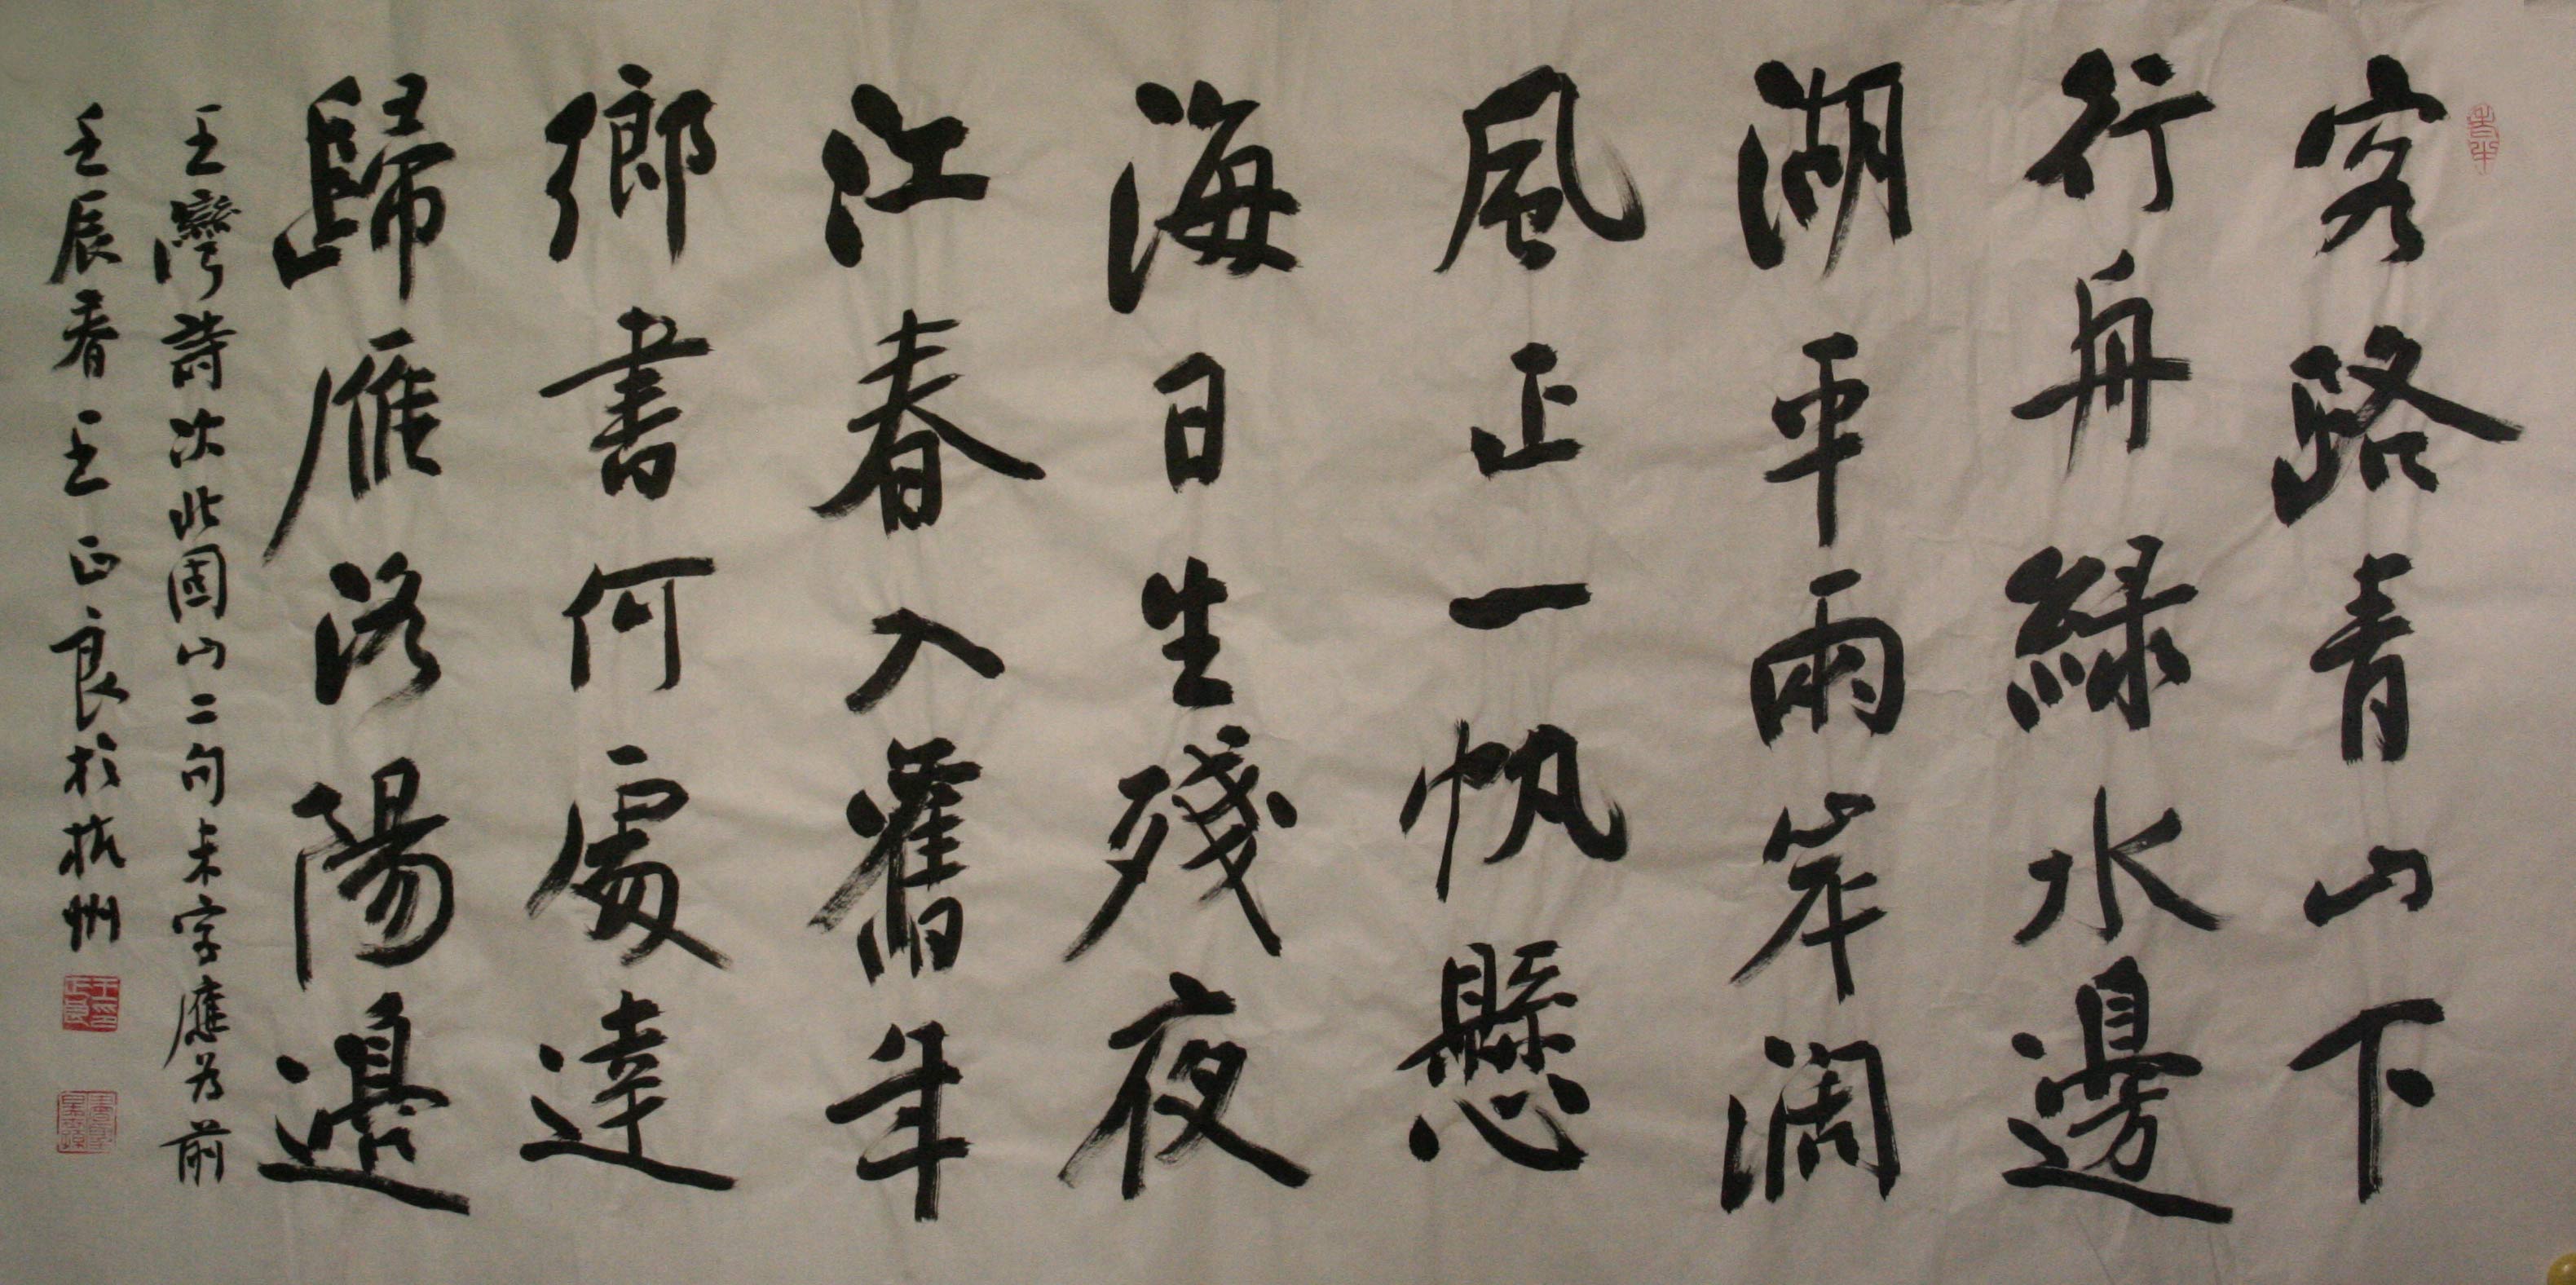 客路青山下
行舟緑水邊
湖平兩岸闊
風正一帆懸
海日生殘夜
江春入舊年
鄉書何處達
歸雁洛陽邊
王灣詩次北固山二句末字應为前
壬辰春王正良於杭州